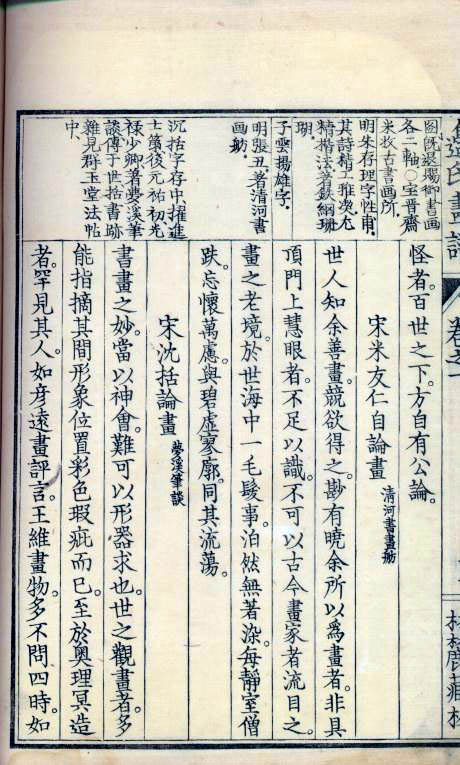 怪者。百世之下。方自有公論。
宋米友仁自論畫 清河書畫舫
世人知余善畫。競欲得之。尠有曉余所以爲畫者。非具
頂門上慧眼者。不足以識。不可以古今畫家者流目之。
畫之老境。於世海中一毛髮事。泊然無著染。每靜室僧
趺。忘懷萬慮。與碧虛寥廓。同其流蕩。
宋沈括論畫 夢溪筆談
書畫之妙。當以神會。難可以形器求也。世之觀畫者。多
能指摘其間形象位置彩色瑕疵而已。至於奧理冥造
者。罕見其人。如彦遠畫評言。王維畫物。多不問四時。如
圖既退賜御書画
各二軸〇宝晋齋
米敉古書画所。
明朱存理字性甫。
其詩精工雅逸尤
精楷法著鉄網珊
瑚。
子雲揚雄字。
明張丑。著清河書
画舫。
沉括字存中擢進
士第後元祐初光
祿少卿著夢溪筆
談傳于世括書跡
雜見群玉堂法帖
中、
畫譜
卷之